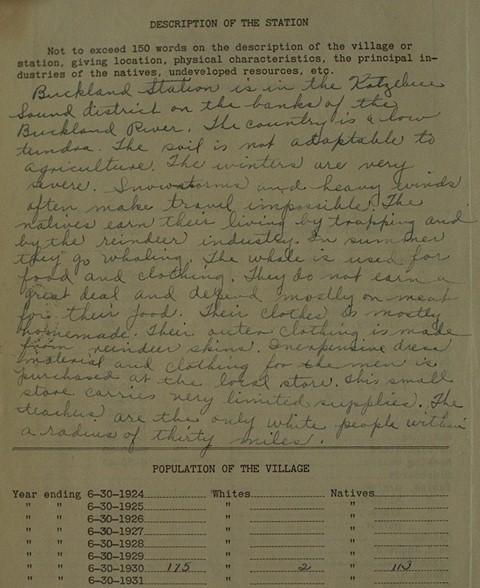 DESCRIPTION OF THE STATION
Not to exceed 150 words on the description of the village or
station, giving location, physical characteristics, the principal in-
dustries of the natives, undeveloped resources, etc.
Buckland Station is in the Kotzebue
Sound district on the banks of the
Buckland River. The country is a low
tundra. The soil is not adaptable to
agriculture. The winters are very
severe. Snowstorms and heavy winds
often make travel impossible. The
natives earn their living by trapping and
by the reindeer industry. In summer
they go whaling. The whale is used for
food and clothing. They do not earn a
great deal and depend mostly on meat
for their food. Their clothes is mostly
homemade. Their outer clothing is made
from reindeer skins. Inexpensive dress
material and clothing for the men is
purchased at the local store. This small
store carries very limited supplies. The
teachers are the only white people within
a radius of thirty miles.
POPULATION OF THE VILLAGE
Year ending 6-30-1924 Whites Natives
" " 6-30-1925 " "
" " 6-30-1926 " "
" " 6-30-1927 " "
" " 6-30-1928 " "
" " 6-30-1929 " "
" " 6-30-1930 175 " 2 "
" " 6-30-1931 " "